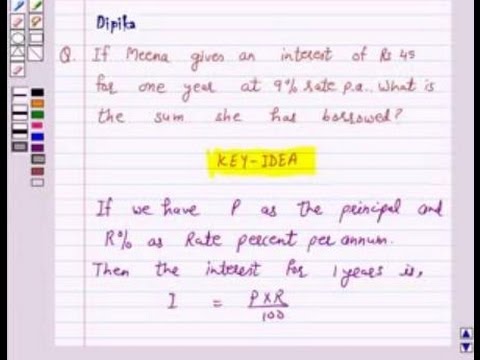 Dipika
Q. If Meena gives an interest of Rs 45
for one year at 9% rate p.a.. What is
the sum she has borrowed?
KEY-IDEA
If we have P as the principal and
R% as Rate percent per annum.
Then the interest for 1 years is,
I = P×R/100